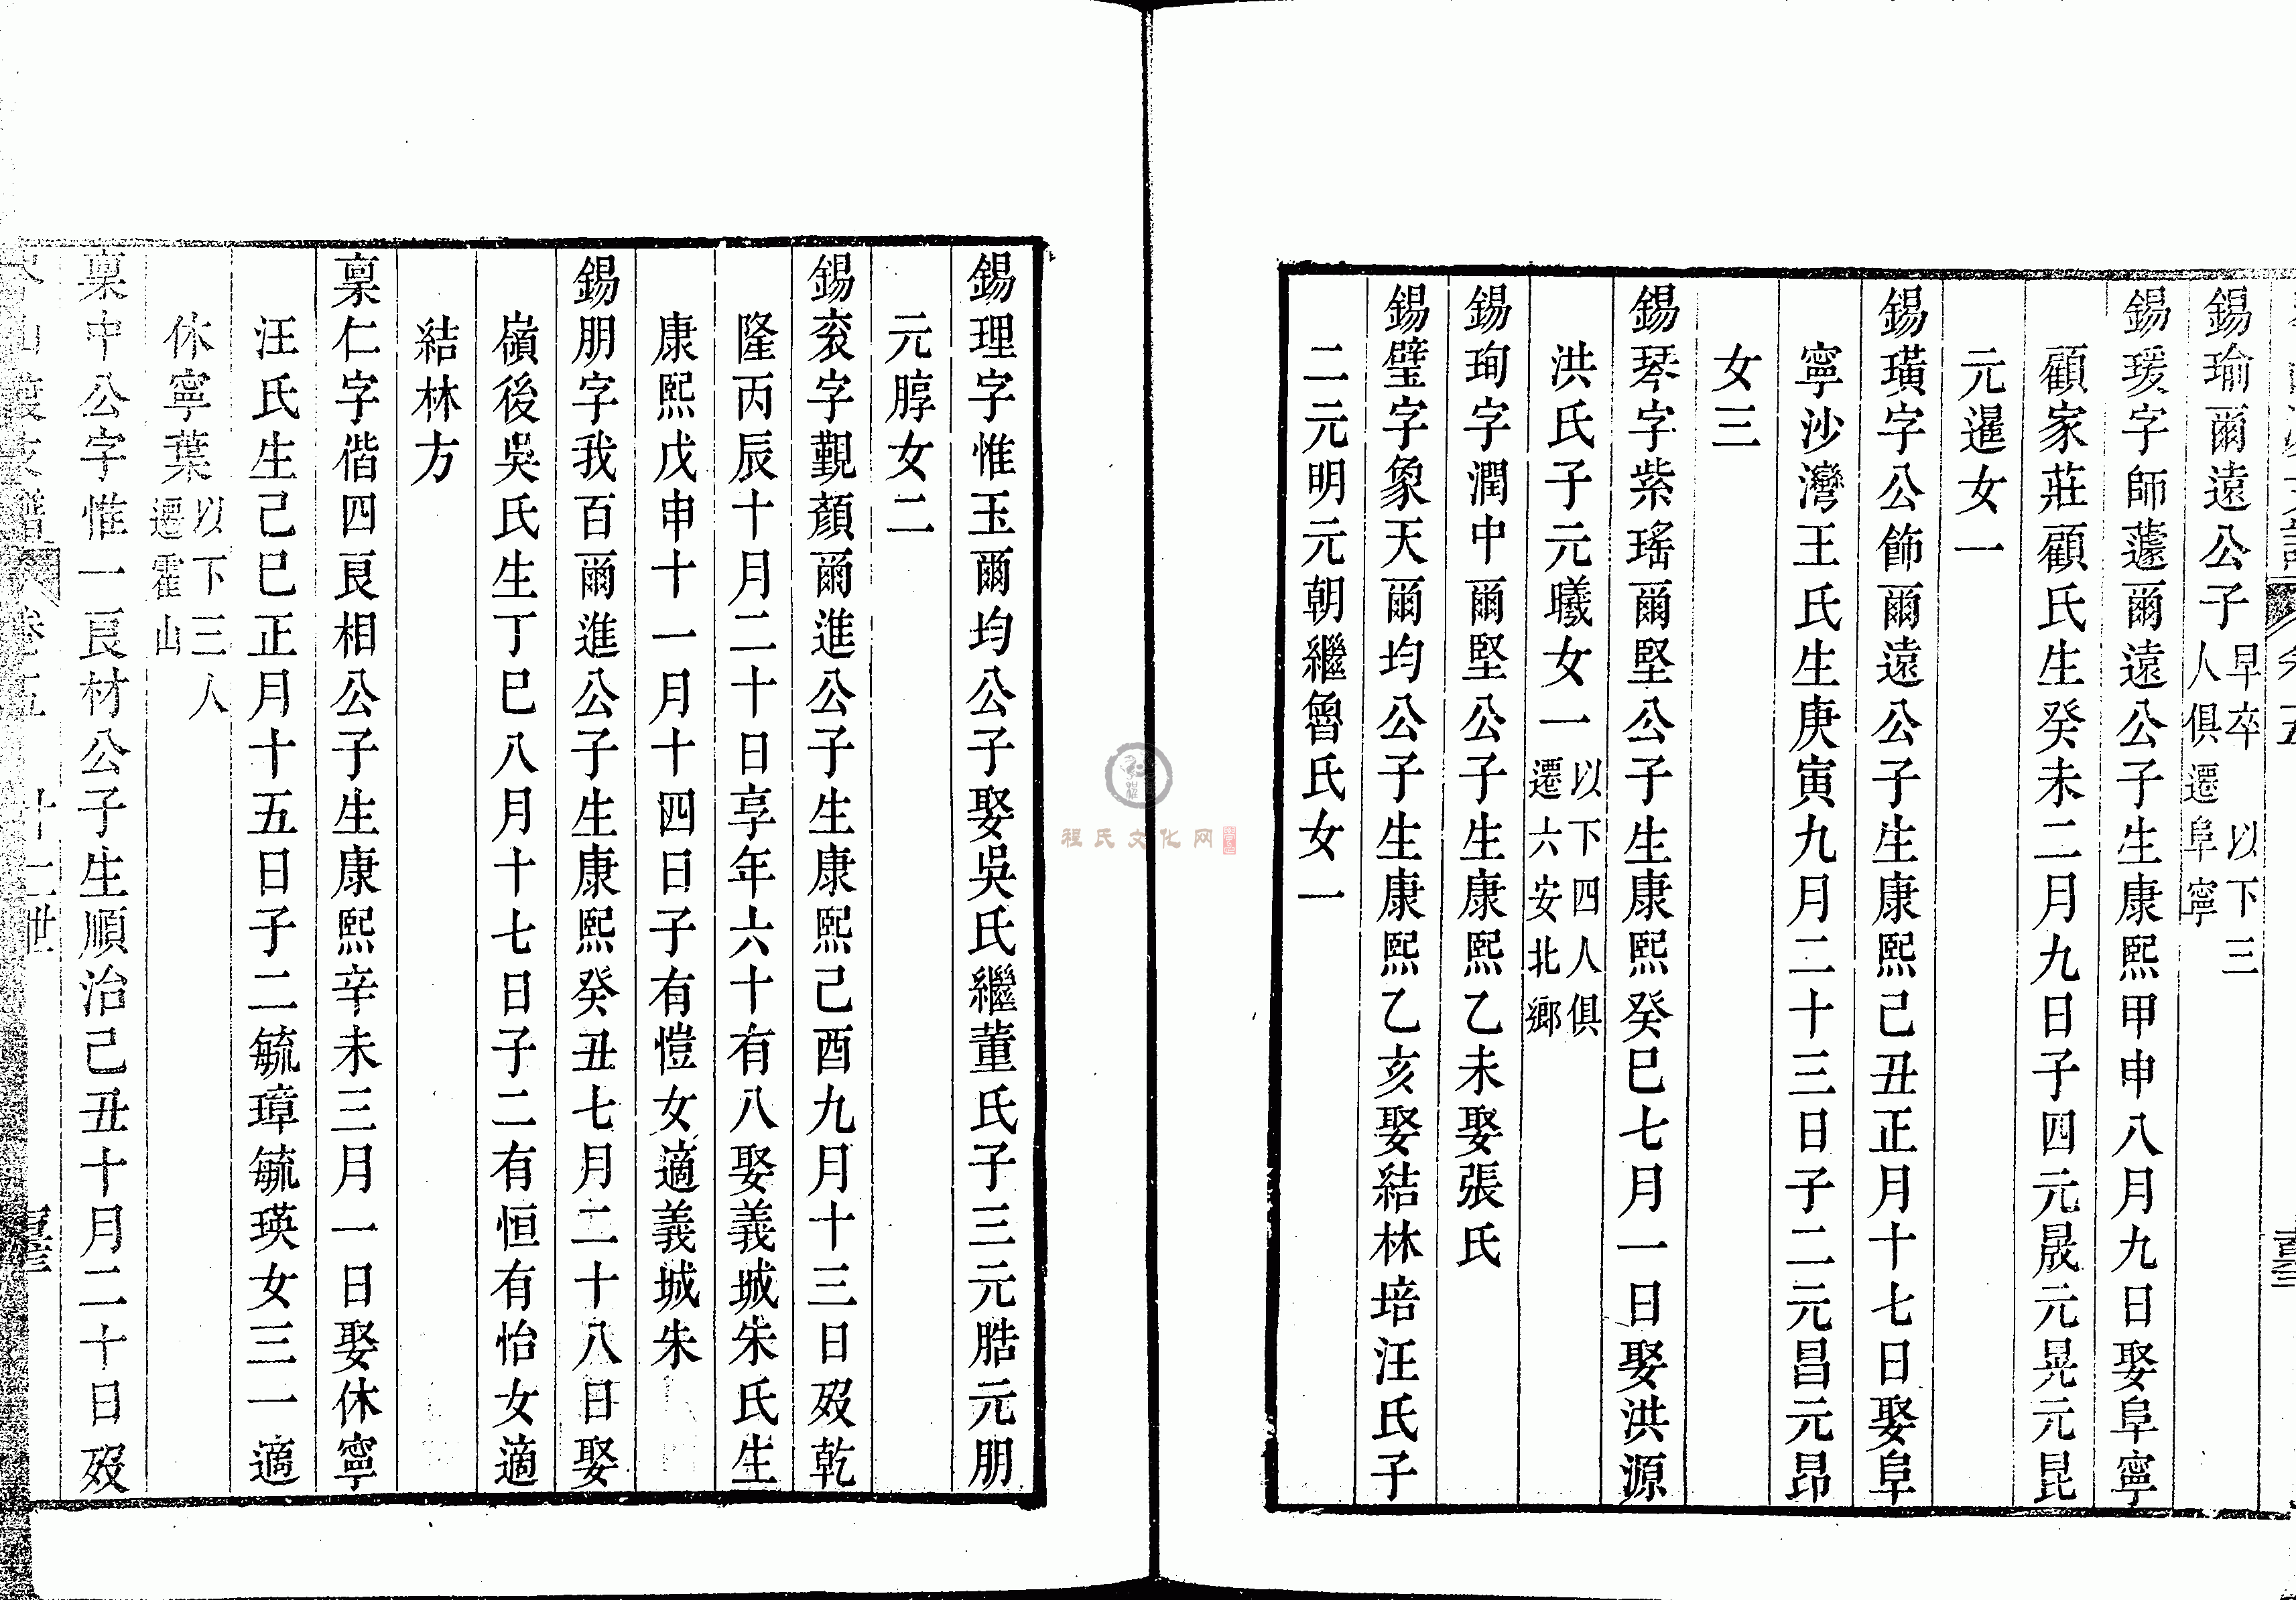 錫瑜爾遠公子早卒 以下三人俱遷阜寧
錫瑗字師蘧爾遠公子生康熙甲申八月九日娶阜寧
顧家莊顧氏生癸未二月九日子四元晟元晃元昆
元暹女一
錫璜字公飾爾遠公子生康熙己丑正月十七日娶阜
寧沙灣王氏生庚寅九月二十三日子二元昌元昂
女三
錫琴字紫瑤爾堅公子生康熙癸巳七月一日娶洪源
洪氏子元曦女一以下四人俱遷六安北鄉
錫珣字潤中爾堅公子生康熙乙未娶張氏
錫璧字象天爾均公子生康熙乙亥娶結林培汪氏子
二元明元朝繼魯氏女一
錫理字惟玉爾均公子娶吳氏繼董氏子三元䏆元朋
元朜女二
錫衮字覲顏爾進公子生康熙己酉九月十三日歿乾
隆丙辰十月二十日享年六十有八娶義城朱氏生
康熙戊申十一月十四日子有愷女適義城朱
錫朋字我百爾進公子生康熙癸丑七月二十八日娶
嶺後吳氏生丁巳八月十七日子二有恒有怡女適
結林方
稟仁字偕四良相公子生康熙辛未三月一日娶休寧
汪氏生己巳正月十五日子二毓璋毓瑛女三一適
休寧葉以下三人遷霍山
稟中公字惟一良材公子生順治己丑十月二十日歿
支譜 卷五 十二世
程氏文化网